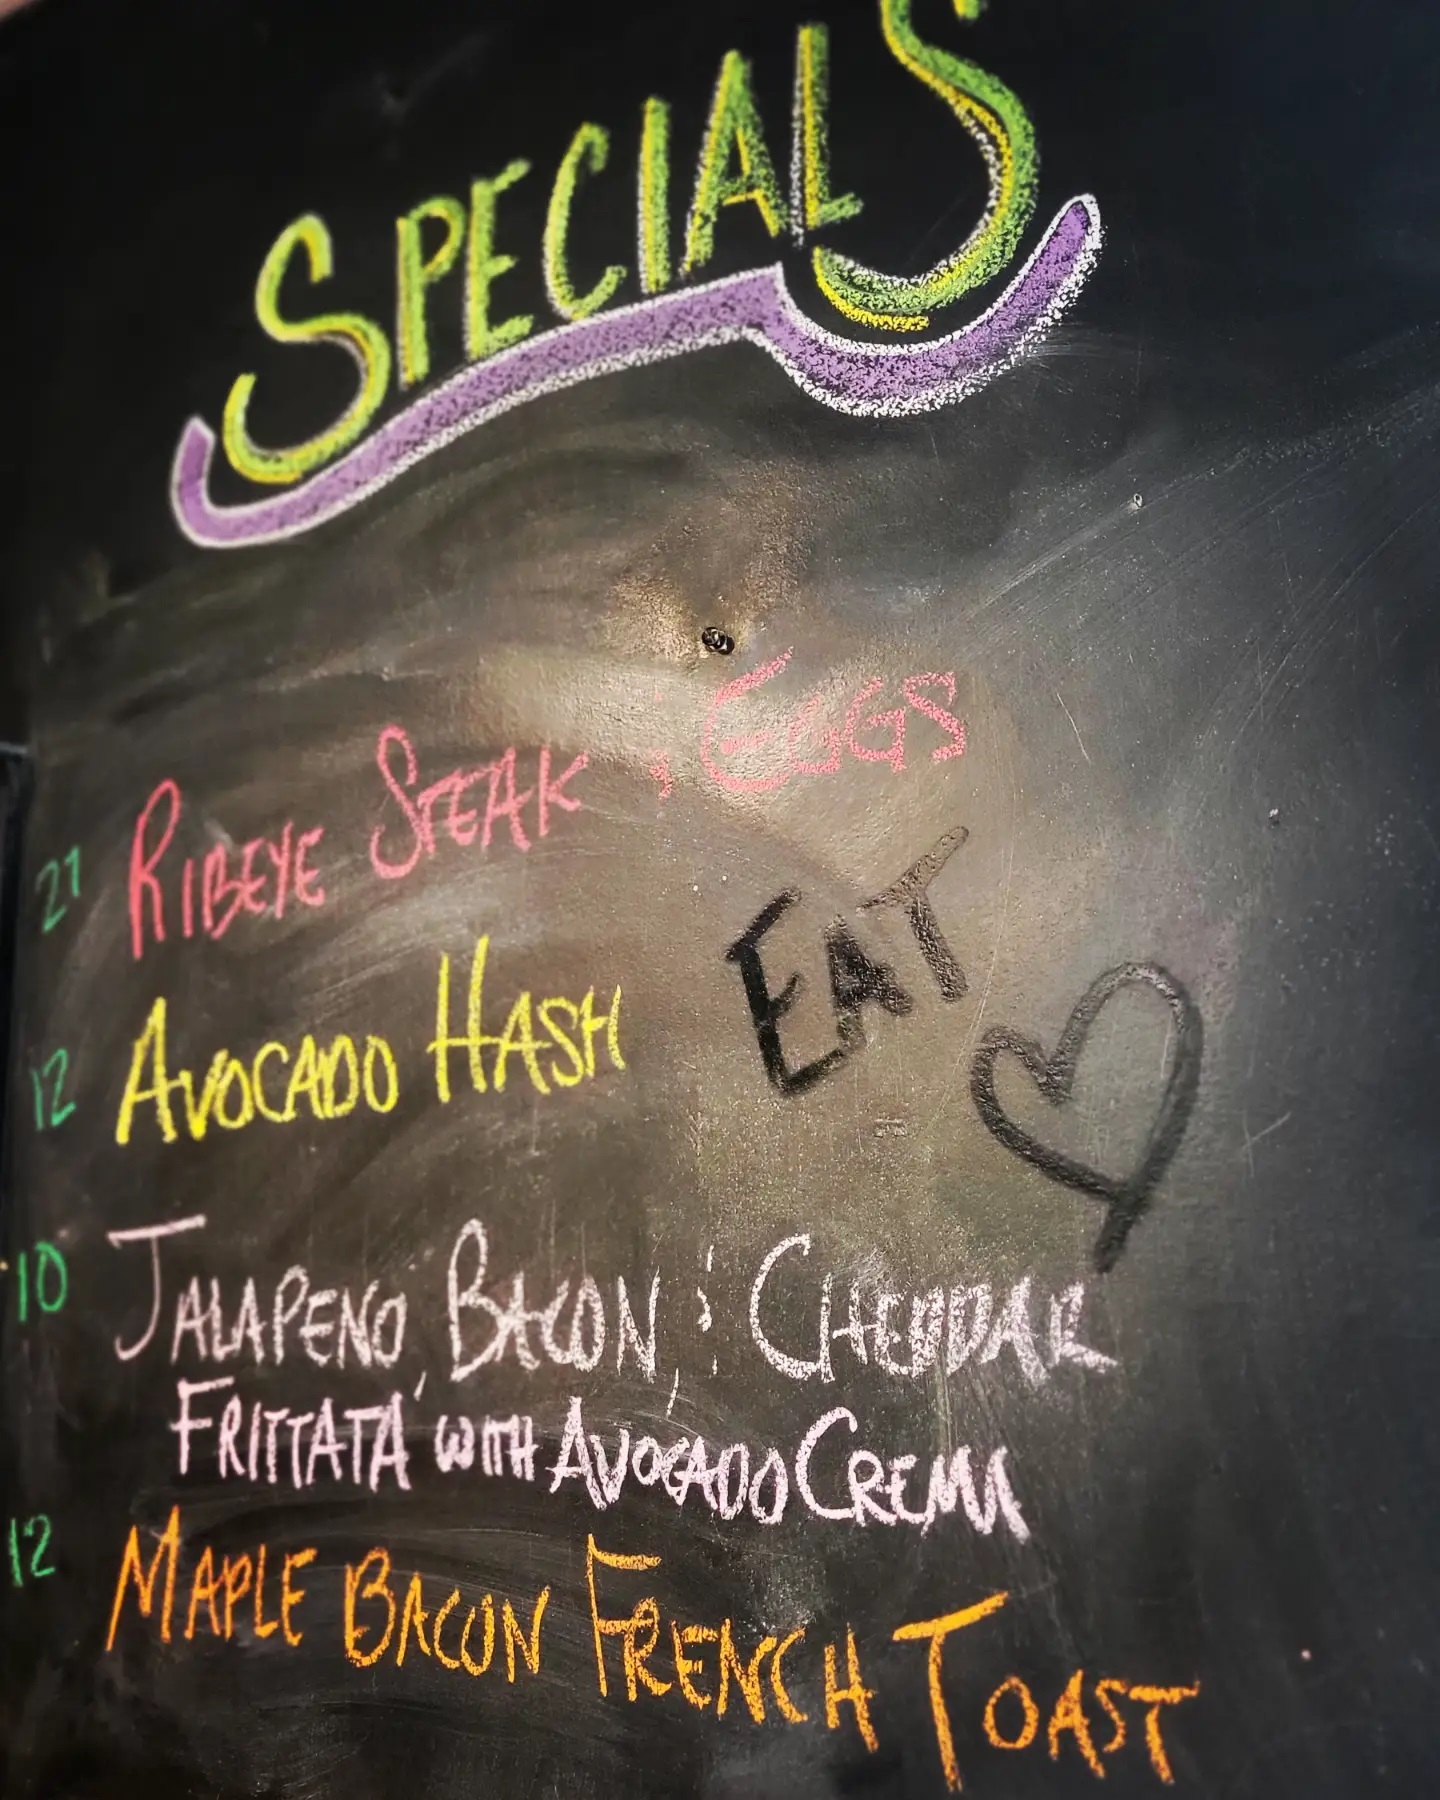 SPECIALS
21 RIBEYE STEAK ; EGGS
EAT
12 AVOCADO HASH
10 JALAPENO, BACON, ; CHEDDAR
FRITTATA WITH AVOCADO CREMA
12 MAPLE BACON FRENCH TOAST